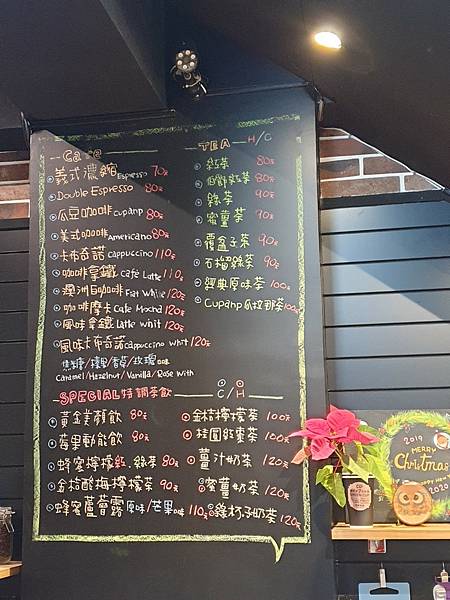 Cafe
義式濃縮 Espresso 70元
Double Espresso 80元
瓜豆咖啡 Cupanp 80元
美式咖啡 Americano 80元
卡布奇諾 Cappuccino 110元
咖啡拿鐵 Cafe Latte 110元
澳洲白咖啡 Flat White 120元
咖啡摩卡 Cafe Mocha 120元
風味拿鐵 Latte whit 120元
風味卡布奇諾 Cappuccino whit 120元
焦糖/榛果/香草/玫瑰 口味
Caramel/Hazelnut/Vanilla/Rose with
TEA H/C
紅茶 80元
伯爵紅茶 80元
綠茶 90元
蜜薑茶 90元
覆盆子茶 90元
石榴綠茶 90元
經典原味茶 100元
Cupanp瓜拉那茶 100元
SPECIAL 特調茶飲
C/H
黃金美顏飲 80元
莓果動能飲 80元
蜂蜜檸檬紅.綠茶 80元
金桔酸梅檸檬茶 90元
蜂蜜蘆薈露 原味/芒果 口味 110元
金桔檸檬茶 100元
桂圓紅棗茶 100元
薑汁奶茶 120元
蜜薑奶茶 120元
綠籽子奶茶 120元
2019
MERRY
Christmas
HAPPY NEW
2020